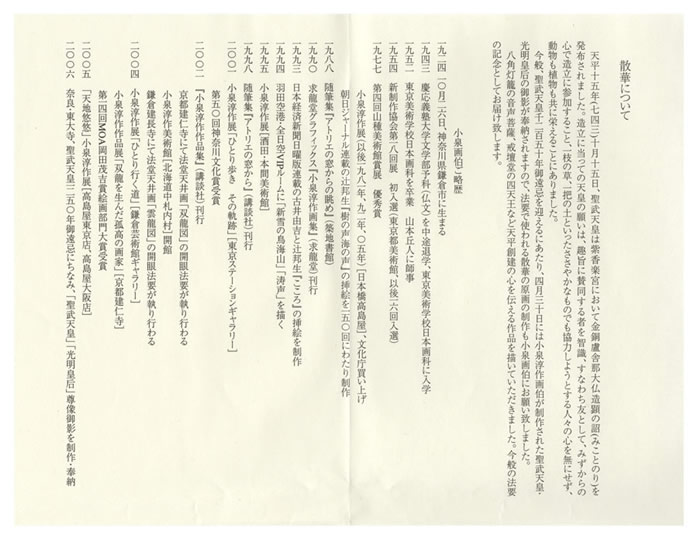 散華について
天平十五年(七四三)十月十五日、聖武天皇は紫香楽宮において金銅盧舎那大仏造顕の詔(みことのり)を
発布されました。造立に当っての天皇の願いは、趣旨に賛同する者を智識、すなわち友として、みずからの
心で造立に参加すること、一枝の草、一把の土といったささやかなものでも協力しようとする人々の心を無にせず、
動物も植物も共に栄えることにありました。
今般、聖武天皇千二百五十年御遠忌を迎えるにあたり、四月三十日には小泉淳作画伯が制作された聖武天皇・
光明皇后の御影が奉納されますので、法要で使われる散華の原画の制作も小泉画伯にお願い致しました。
八角灯籠の音声菩薩、戒壇堂の四天王など天平創建の心を伝える作品を描いていただきました。今般の法要
の記念としてお届け致します。
小泉画伯ご略歴
一九二四 一〇月二六日、神奈川県鎌倉市に生まる
一九四三 慶応義塾大学文学部予科(仏文)を中途退学、東京美術学校日本画科に入学
一九五二 東京美術学校日本画科を卒業 山本丘人に師事
一九五四 新制作協会第一八回展 初入選(東京都美術館、以後一六回入選)
一九七七 第四回山種美術館賞展 優秀賞
小泉淳作展(以後一九八一年、九二年、〇五年)[日本橋高島屋]、文化庁買い上げ
朝日ジャーナル連載の辻邦生『樹の声海の声』の挿絵を一五〇回にわたり制作
一九八八 随筆集『アトリエの窓からの眺め』(築地書館)
一九九〇 求龍堂グラフィックス『小泉淳作画集』(求龍堂)刊行
一九九三 日本経済新聞日曜版連載の古井由吉と辻邦生『こころ』の挿絵を制作
一九九四 羽田空港・全日空VIPルームに「新雪の鳥海山」「涛声」を描く
一九九五 小泉淳作展[酒田・本間美術館]
一九九八 随筆集『アトリエの窓から』(講談社)刊行
二〇〇一 小泉淳作展「ひとり歩き その軌跡」[東京ステーションギャラリー]
第五〇回神奈川文化賞受賞
二〇〇二 『小泉淳作作品集』(講談社)刊行
京都建仁寺にて法堂天井画「双龍図」の開眼法要が執り行わる
小泉淳作美術館[北海道中札内村]開館
鎌倉建長寺にて法堂天井画「雲龍図」の開眼法要が執り行わる
二〇〇四 小泉淳作展「ひとり行く道」[鎌倉芸術館ギャラリー]
小泉淳作作品展「双龍を生んだ孤高の画家」[京都建仁寺]
第一四回MOA岡田茂吉賞絵画部門大賞受賞
二〇〇五 「天地悠悠」小泉淳作展[高島屋東京店、高島屋大阪店]
二〇〇六 奈良・東大寺、聖武天皇一二五〇年御遠忌にちなみ、「聖武天皇」「光明皇后」尊像御影を制作・奉納